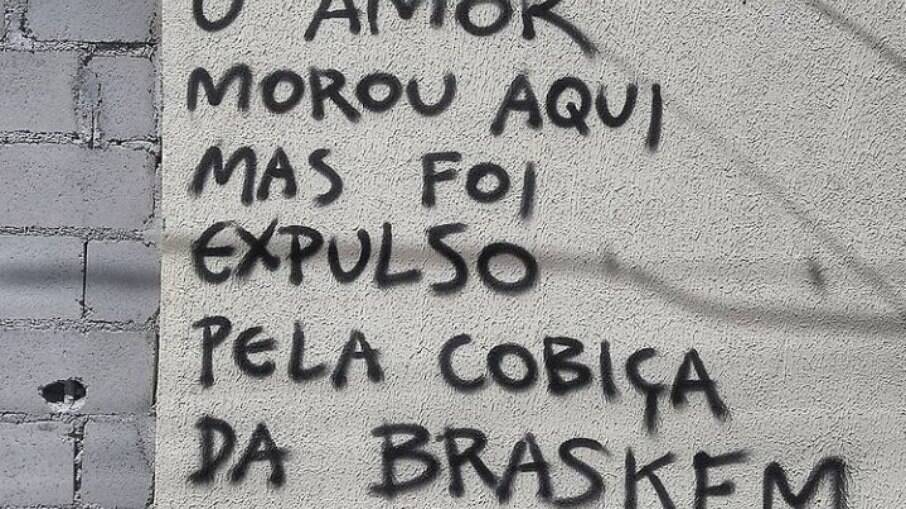 O AMOR
MOROU AQUI
MAS FOI
EXPULSO
PELA COBIÇA
DA BRASKEM